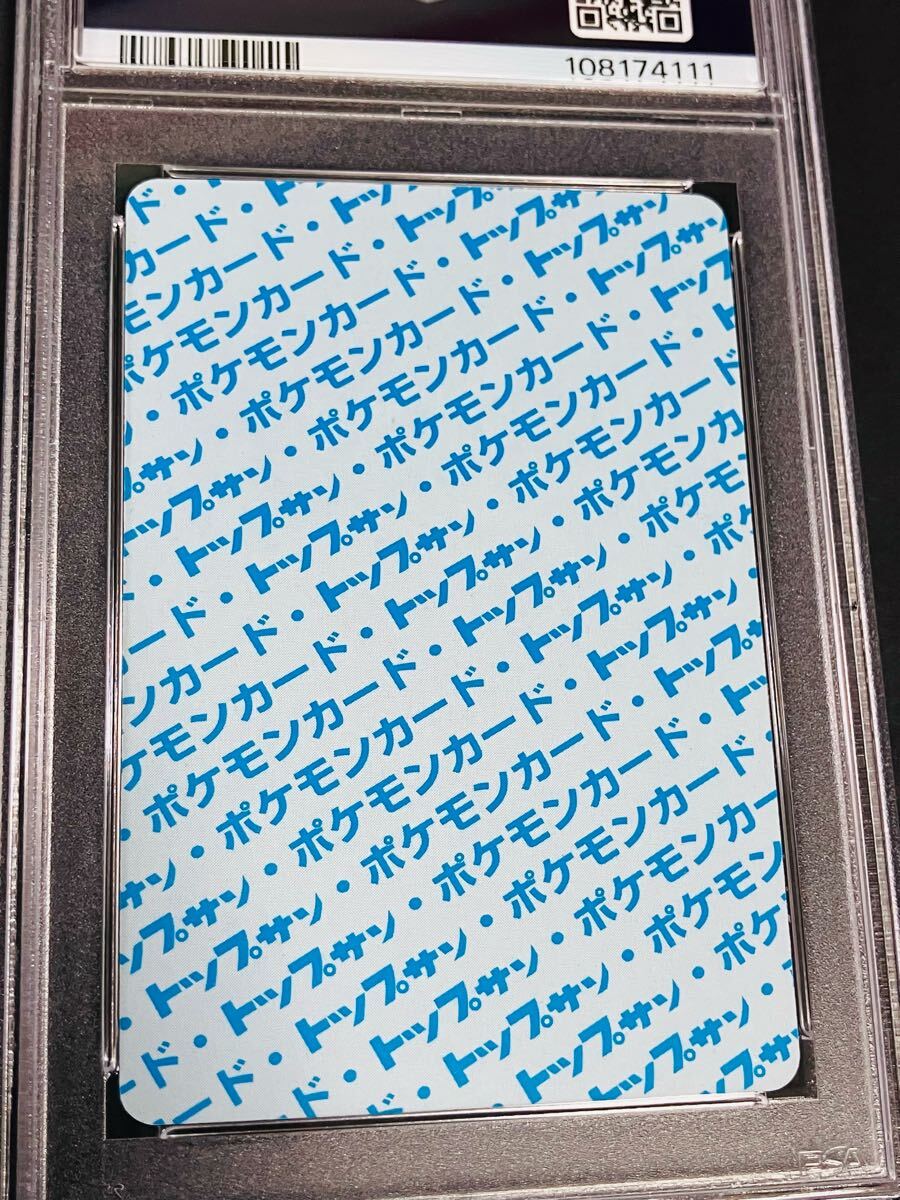 108174111
ド・ト
カード・トップサン
モンカード・トップサン
ポケモンカード・トップサン
・ポケモンカード・トップサン
プサン・ポケモンカード・トップ
トップサン・ポケモンカード・ト
・トップサン・ポケモンカード
ード・トップサン・ポケモンカ
ンカード・トップサン・ポケモン
ケモンカード・トップサン・ポケ
・ポケモンカード・トップサン・
サン・ポケモンカード・トップサ
ップサン・ポケモンカード・トッ
・トップサン・ポケモンカード・
カード・トップサン・ポケモンカー
ド・トップサン・ポケモン
トップサン・ポケ
トップサン・
トップサ
PSA